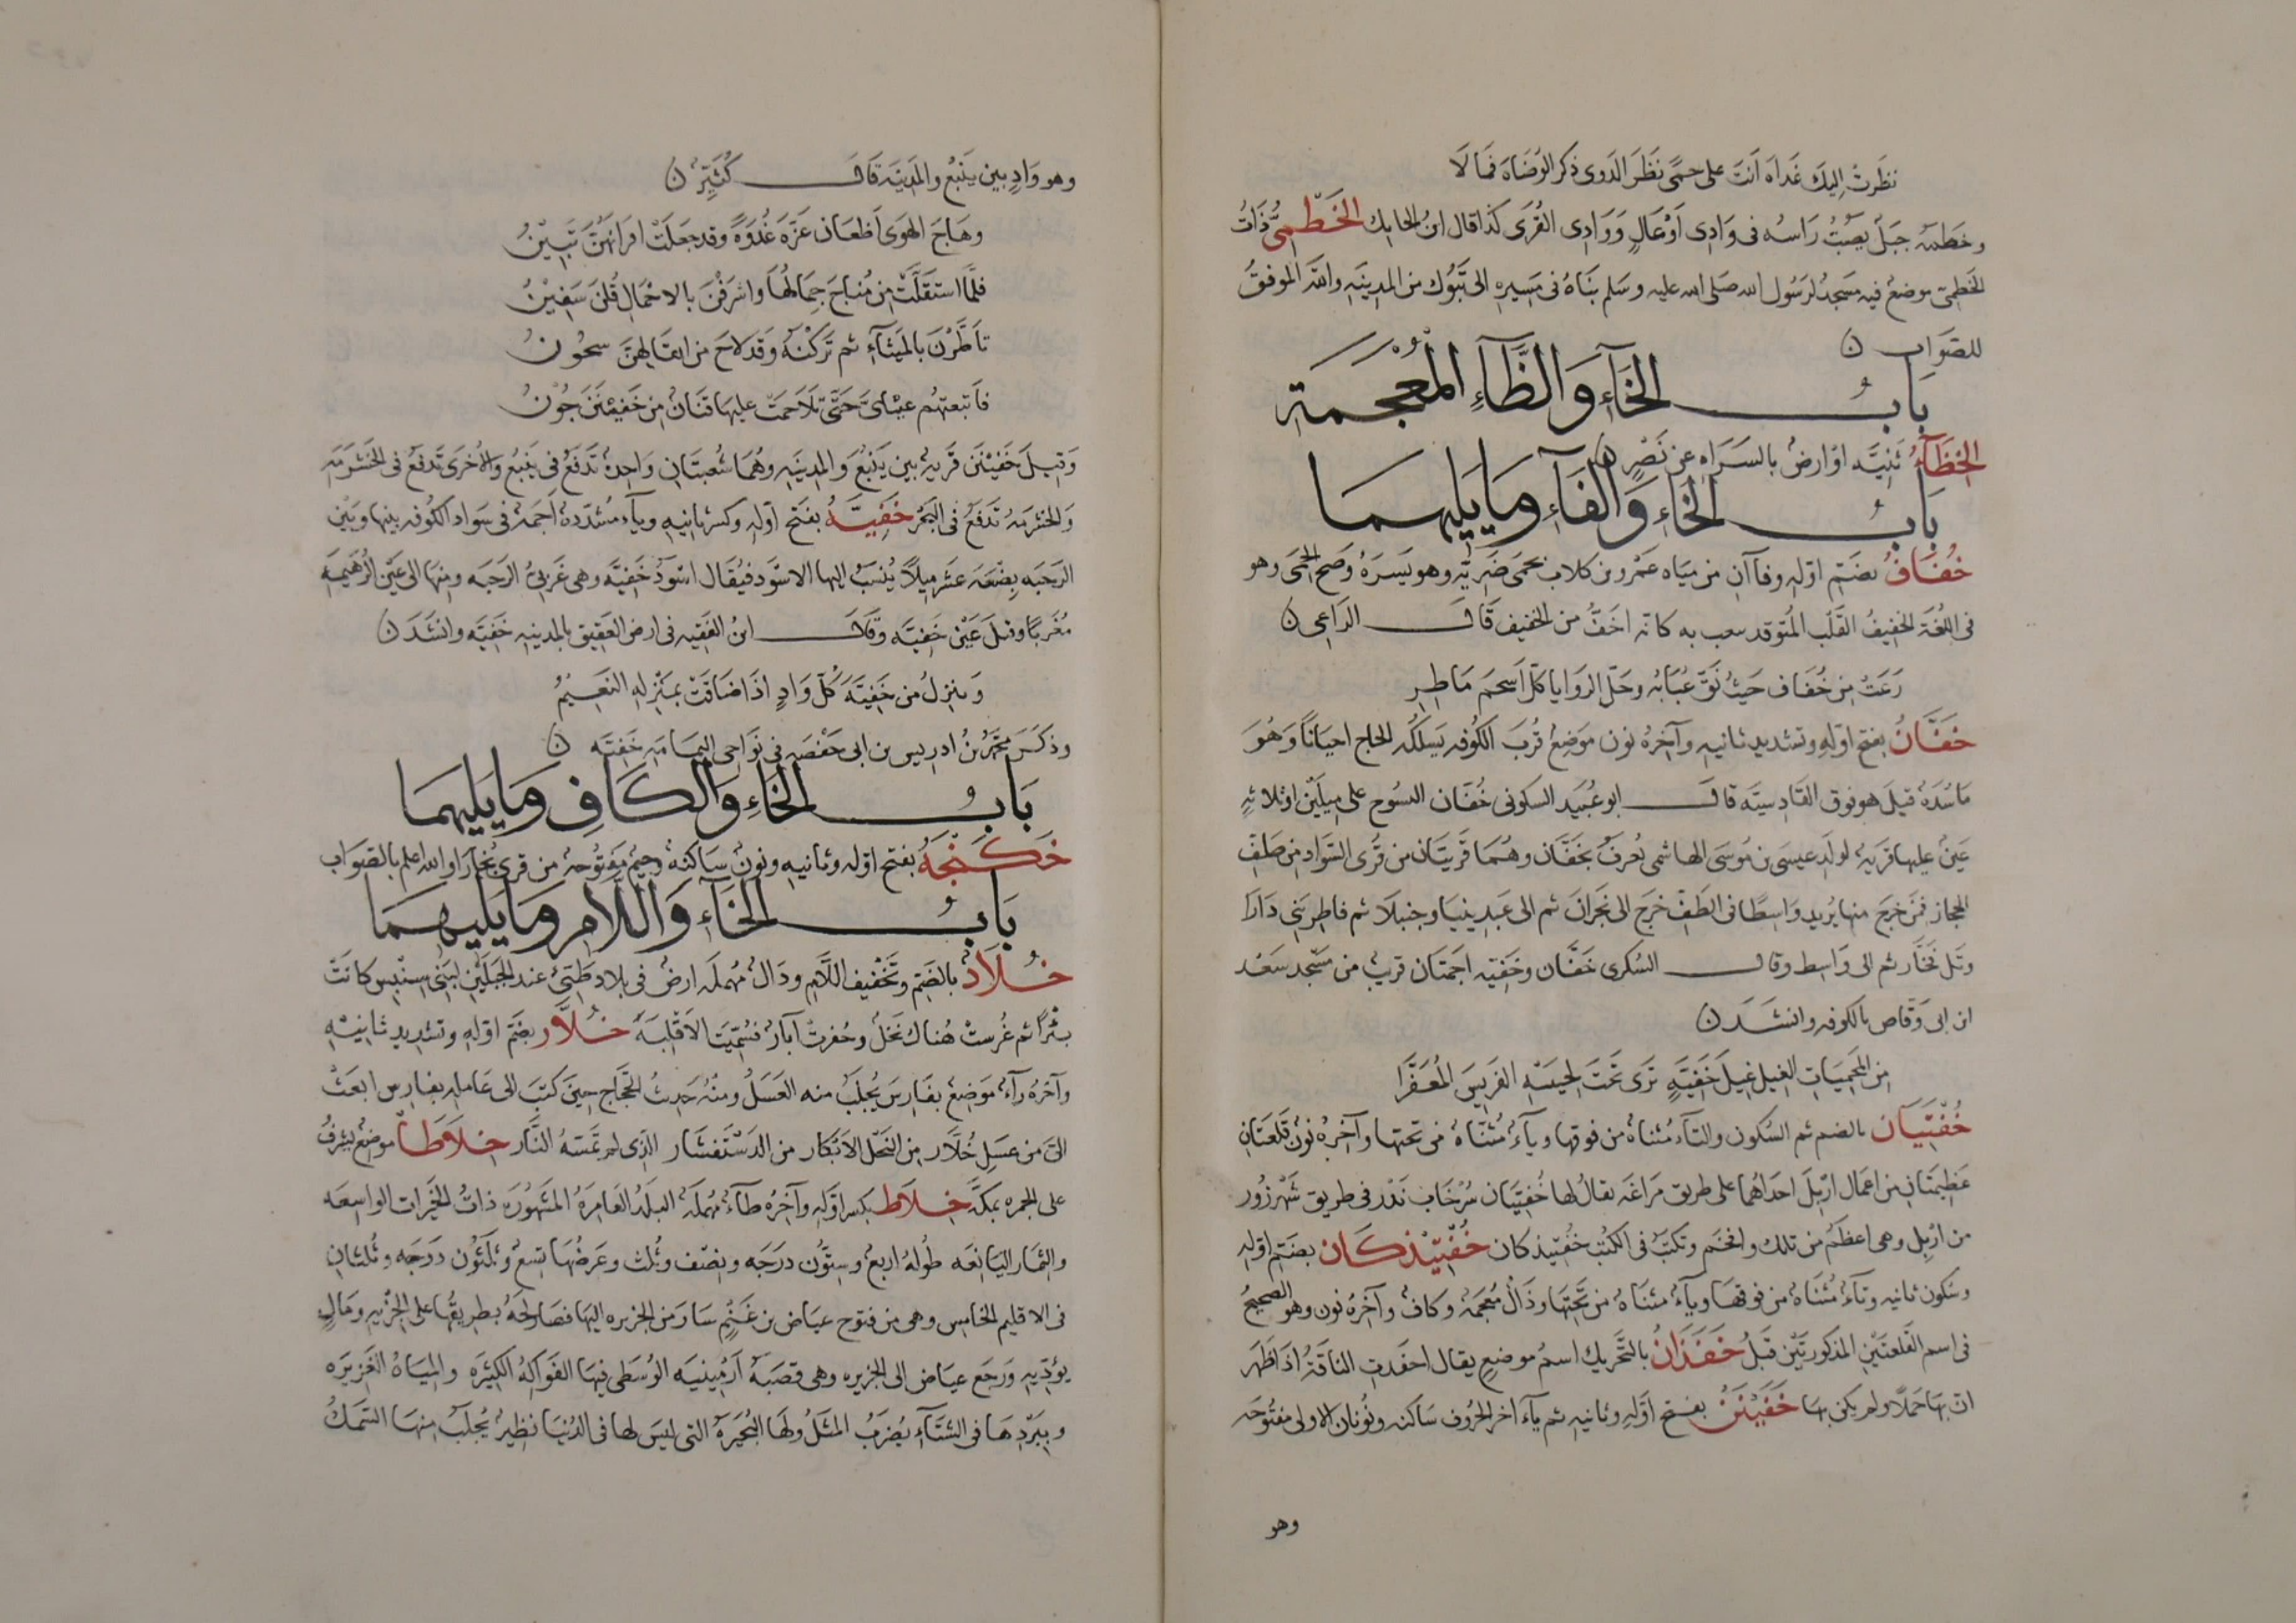 نظَرتْ اِليكَ غَداه اَنتَ على حمىً نَظَرَ الدَوى ذكر الوُضَاه فمالَا
وخطمه جبلٌ يصبّ رَاسُه فى وَادِى اَوْعَالٍ وَوَادِى القُرَى كذا قال ابنُ الحايك الخَطْمِىُّ ذَاتُ
الخَطمىّ موضعٌ فيه مَسجدٌ لرسُول الله صَلى الله عليه وسَلم بَناهُ فى مَسِيره الى تَبُوك من المدينَه والله الموفقُ
للصَوَاب ن
بَابُ الخَآءِ وَالظَّآءِ المُعْجَمَةِ
الخظَآءُ ثَنِيَّه اوْارضٌ بالسَرَاهِ عن نَصْرٍ ن
بَابُ الخَآءِ وَالفَآءِ ومَا يَليهما
خُفَافٌ بضَمّ اوّلِه وفاآنِ من ميَاه عَمْرو بن كلاب بحمَى ضَرِيّه وهو يَسرَهُ وَضح الحمَى وهو
فى اللُغَة الخفيفُ القَلْب المُتوقد سعب به كانّه اخَفُّ من الخفيف قَالَ الرَاعِى ن
رَعَتْ مِن خُفَاف حَيثُ نَقَّ عُبَابُه وحَلّ الرَوايا كلّ اَسحَم مَاطِرِ
خَفَّانُ بفتح اوّلِهِ وتشديد ثانيه وآخرُه نون مَوضِعٌ قُربَ الكُوفه يَسلكُه الحاج احيَاناً وَهُوَ
مَاسَدَهٌ قيلَ هو فوق القَادِسيَّه قالَ ابو عُبيَد السَكونى خُفّان النسوح على ميلَيْن اوثلاثهٍ
عَينٌ عليها قريهٌ لولَد عيسَى بن مُوسَى الهاشمى تُعرفُ بخَفّان وهُما قَريَتان من قُرَى السَّواد من طفّ
الحجاز فمَن خرَجَ منها يُريد وَاسِطًا فى الطَفّ خرَج الى نجَرانَ ثم الى عَبدينيا وجنبلَا ثم قناطر بَنى دَارَا
وتَل فَخّار ثم الى وَاسِط وقال السُكرى خَفَّان وخَفيّه اجمَتان قريبٌ من مسَجد سَعْد
ابن ابى وَقّاص بالكوفه وانشَدَ ن
مِنَ المحمِيَاتِ الغيل غِيلَ خَفيَّهٍ تَرى تَحْتَ لحيَيْهِ الفَريِسَ المُعَفَّرا
خُفْتِيَان بالضم ثم السُكون والتاءُ مُثناهٌ من فَوقها ويآءٌ مُثنّاهٌ من تحتها وآخرُه نونٌ قَلعتَانِ
عَظيمتَانِ من اعمَال ارْبلَ احدَاهُما على طريق مَراغَه يقالُ لها خُفتِيَان سُرْخاب نَدْر فى طريق شَهْرزُور
من ارْبل وهى اعظمُ من تلك وافخَم وتكتَبُ فى الكُتب خُفتِيْذكان خُفْتِيْذكَان بضَمّ اوّلِه
وسُكون ثانيه وتآءٌ مُثنَاهٌ من فوقها ويآءٌ مثنَاهٌ من تَحْتِها وذَالٌ مُعجَمهٌ وكافٌ وآخرُه نون وهو الصحيحُ
فى اسم القَلعتَيْنِ المذكورتَيْن قَبلُ خَفَدَانُ بالتَّحريك اسمُ موضعٍ يقال اخفَدتِ الناقَهُ اذا اظهر
انّ بها حَملاً ولم يكن بها خَفَيْنَنُ بفتح اوّلِه وثانيهِ ثم يآء اخر الحُروف ساكنه ونُونان الاولى مَفتُوحه
وهو
وهو وَادٍ بين يَنبُع والمَدينَه قَالَ كُثَيّرٌ ن
وهَاجَ الهَوَى اَظعَانُ عَزّهَ غُدوَهً وقد جعَلَتْ اقرَانُهُنَّ تَبِيْنُ
فلَمَّا استَقَلَّتْ مِن مُنَاخٍ جِمَالُهَا واشرَفْنَ بالاحْمَال قُلنَ سَفِيْنُ
تأطَّرْنَ بالمَيثَآءِ ثم تَرَكْنَهُ وَقد لاحَ من اثقَالِهنَّ سحُونُ
فاَتبعتهُم عَيْنَاىَ حَتَّى تَلَاحمَتْ عليها قنَانٌ مِن خَفَيْنَنَ جُوْنُ
وَقيلَ خَفَيْنَن قَريهٌ بين يَنْبُعَ وَالمدينَه وهُمَا شُعبتَانِ وَاحدهٌ تَدفعُ فى يَنبُع والأُخرَى تَدفعُ فى الخَشرَمَه
وَالخشرمَهُ تَدفعُ فى البَحْر خَفِيَّهُ بفَتح اوّلِه وكسر ثانيهِ ويآء مُشدّدهٌ اَجَمهٌ فى سَواد الكُوفه بينها وبَيْن
الرَحبَه بِضْعَه عَشَر ميلاً يُنسَبُ اليها الاسْوَد فيُقَال اسْوَدُ خَفيَّه وهى غَربىُّ الرَحبَه ومنها الى عَين الرُهَيمَه
مُغرَبًا وقيلَ عَيْن خَفيَّه وَقَالَ ابنُ الفَقيهِ فى ارض العَقيِق بالمدينه خَفيّه وانشَدَ ن
وَينزلُ من خَفِيّهَ كُلَّ وَادٍ اذَا ضَاقَتْ بمَنْزلِه النَعَيْمُ
وذكَرَ محمّدُ بنُ ادريس بن ابى حَفْصَه فى نَوَاحى اليمَامَه خَفيّه ن
بَابُ الخَآءِ وَالكَافِ ومَا يَليهِمَا
خَكَنْجَهُ بفتح اوّله وثانيهِ ونونٌ سَاكنهٌ وجيمٌ مَفتُوحهٌ من قرى بُخارَا والله اعلم بالصَوَاب
بَابُ الخَآءِ وَاللَّامِ ومَا يَليهِمَا
خُلَادٌ بالضَم وتَخْفيف اللَّام ودَالٌ مُهملَه ارضٌ فى بلاد طَيّئ عند الجبَلَيْنِ لبَنىْ سِنْبِس كانَتْ
بئْرًا ثم غُرست هُناك نخَلٌ وحُفرتْ آبارٌ فسُمّيَتَا لاَقْلِبَهَ خُلاَّر بضَم اوّلِه وتشديد ثانيْهِ
وآخرُه رآءٌ مَوضعٌ بفَارِسَ يُجلَبُ منه العَسَلُ ومنْهُ حَديثُ الحَجّاج حينَ كتَبَ الى عَامله بفارس ابعَثْ
الىَّ من عسَلِ خُلَّار من النَحْل الاَبْكار من الدَسْتَفشَار الذى لم تمَسّه النَّار خِلَاطَاٌ موضعٌ يُشرفُ
على الجمره بمكّهَ خِلاَط بكسر اوّلِه وآخرُه طآءٌ مُهملَه البلَدُ العَامرَهُ المشَهُورَه ذاتُ الخَيرات الواسِعَه
والثمار اليَانعَه طُولهُ اربعٌ وستُّون درَجَه ونصْف وثُلث وعَرضُها تِسعٌ وثلثُون درَجَه وثُلثانِ
فى الاقليم الخامس وهى من فتوح عيَاض بن غَنْمٍ سارَ من الجزيره اليها فصَالحَهُ بطريقُها على الجِزْيَه ومَالٍ
يؤدّيه ورَجَع عيَاض الى الجزيره وهى قصَبهُ اَرْمينيَه الوُسَطى فيها الفَوَاكهُ الكَثيرَه والميَاهُ الغَزيرَه
وببَرْدِهَا فى الشتَآءِ يُضرَبُ المثَلُ ولَها البُحَيرَهُ التى ليسَ لها فى الدُنيا نظيرٌ يُجلَبُ منها السَمَكُ